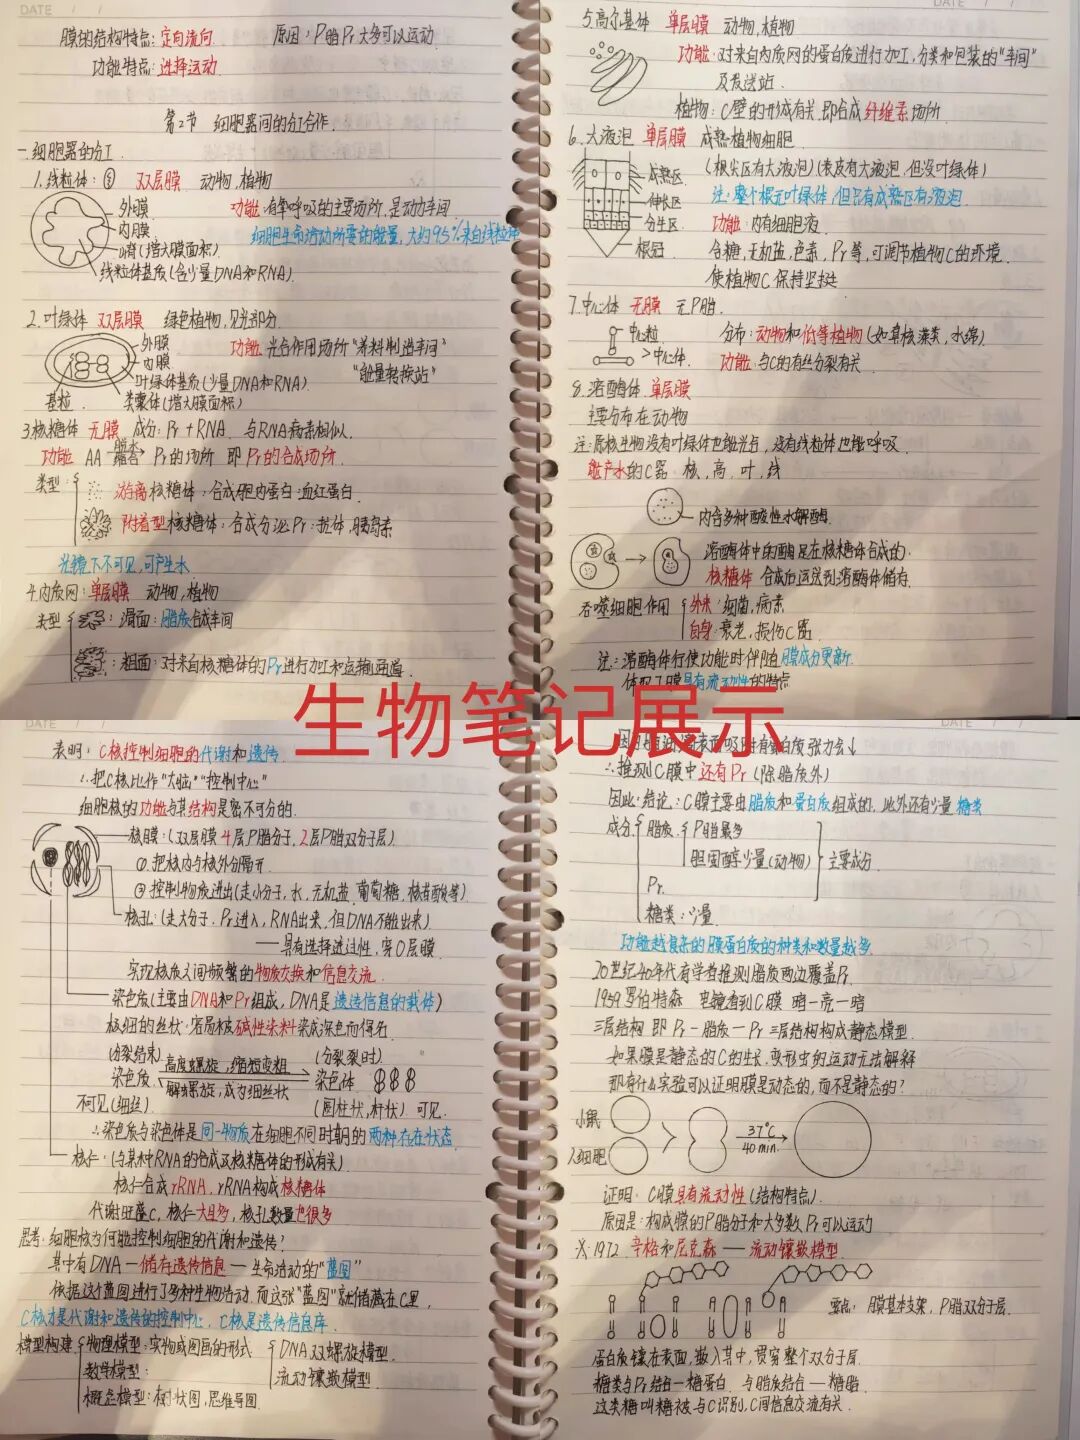 DATE / /
膜的结构特点:定向流向 原因:P脂Pr大多可以运动
功能特点:选择运动
第2节 细胞器间的分工合作
一.细胞器的分工
1.线粒体: 双层膜 动物,植物
外膜 功能:有氧呼吸的主要场所,是动力车间
内膜 细胞生命活动所需的能量,大约95%来自线粒体
嵴(增大膜面积)
线粒体基质(含少量DNA和RNA)
2.叶绿体 双层膜 绿色植物,见光部分
外膜 功能:光合作用场所"养料制造车间"
内膜 "能量转换站"
叶绿体基质(少量DNA和RNA)
基粒 类囊体(增大膜面积)
3.核糖体 无膜 成分:Pr+RNA 与RNA病毒相似
功能 AA 脱水缩合 Pr的场所 即Pr的合成场所
类型: 游离核糖体:合成胞内蛋白 血红蛋白
附着型核糖体:合成分泌Pr:抗体,胰岛素
光镜下不可见,可产生水
4.内质网:单层膜 动物,植物
类型 滑面:脂质合成车间
粗面:对来自核糖体的Pr进行加工和运输通道
DATE / /
5.高尔基体 单层膜 动物,植物
功能:对来自内质网的蛋白质进行加工,分类和包装的"车间"
及发送站
植物:C壁的形成有关.即合成纤维素场所
6.大液泡 单层膜 成熟植物细胞
成熟区 (根尖区有大液泡)(表皮有大液泡,但没叶绿体)
伸长区 注:整个根无叶绿体,但只有成熟区有液泡
分生区 功能:内有细胞液
根冠 含糖,无机盐,色素,Pr等,可调节植物C的环境
使植物C保持坚挺
7.中心体 无膜 无P脂
中心粒 分布:动物和低等植物(如单核藻类,水绵)
>中心体 功能:与C的有丝分裂有关
8.溶酶体 单层膜
主要分布在动物
注:原核生物没有叶绿体也能光合,没有线粒体也能呼吸
能产水的C器 核,高,叶,线
内含多种酸性水解酶
溶酶体中的酶是在核糖体合成的
核糖体 合成后运送到溶酶体储存
吞噬细胞作用 外来:细菌,病毒
自身:衰老,损伤C器
注:溶酶体行使功能时伴随膜成分更新
体现了膜具有流动性的特点
生物笔记展示
DATE / /
表明:C核控制细胞的代谢和遗传
∴把C核比作"大脑""控制中心"
细胞核的功能与其结构是密不可分的
核膜:(双层膜 4层P脂分子,2层P脂双分子层)
①把核内与核外分隔开
②控制物质进出(走小分子,水,无机盐,葡萄糖,核苷酸等)
核孔:(走大分子,Pr进入,RNA出来,但DNA不能出来)
——具有选择透过性,穿0层膜
实现核质之间频繁的物质交换和信息交流
染色质(主要由DNA和Pr组成,DNA是遗传信息的载体)
极细的丝状.容易被碱性染料染成深色而得名
(分裂结束) 高度螺旋,缩短变粗 (分裂时)
染色质 解螺旋,成为细丝状 染色体
不可见(细丝) (圆柱状,杆状)可见
∴染色质与染色体是同一物质在细胞不同时期的两种存在状态
核仁:(与某种RNA的合成及核糖体的形成有关)
核仁合成rRNA,rRNA构成核糖体
代谢旺盛C,核仁大且多,核孔数量也很多
思考:细胞核为何能控制细胞的代谢和遗传?
其中有DNA—储存遗传信息—生命活动的"蓝图"
依据这个蓝图进行了多种生物活动.而这张"蓝图"就储藏在C里
C核才是代谢和遗传的控制中心,C核是遗传信息库
模型构建 物理模型:实物或图画的形式 DNA双螺旋模型
数学模型: 流动镶嵌模型
概念模型:树状图,思维导图
DATE / /
表面吸附有蛋白质张力会↓
∴推测C膜中还有Pr(除脂质外)
因此:结论:C膜主要由脂质和蛋白质组成的,此外还有少量糖类
成分 脂质 P脂最多
胆固醇少量(动物) 主要成分
Pr
糖类:少量
功能越复杂的膜蛋白质的种类和数量越多
20世纪40年代有学者推测脂质两边覆盖Pr
1959罗伯特森 电镜看到C膜 暗—亮—暗
三层结构 即Pr—脂质—Pr三层结构构成静态模型
如果膜是静态的C的生长.变形虫的运动无法解释
那有什么实验可以证明膜是动态的,而不是静态的?
小鼠
人细胞 37℃ 40min
证明:C膜具有流动性(结构特点)
原因是:构成膜的P脂分子和大多数Pr可以运动
※1972 辛格和尼克森——流动镶嵌模型
要点:膜基本支架,P脂双分子层
蛋白质镶在表面,嵌入其中,贯穿整个双分子层
糖类与Pr结合—糖蛋白 与脂质结合—糖脂
这类糖叫糖被 与C识别,C间信息交流有关